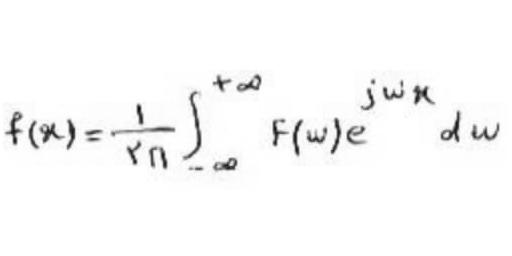 f(x) = \frac{1}{۲π} \int_{-∞}^{+∞} F(w) e^{jwx} dw